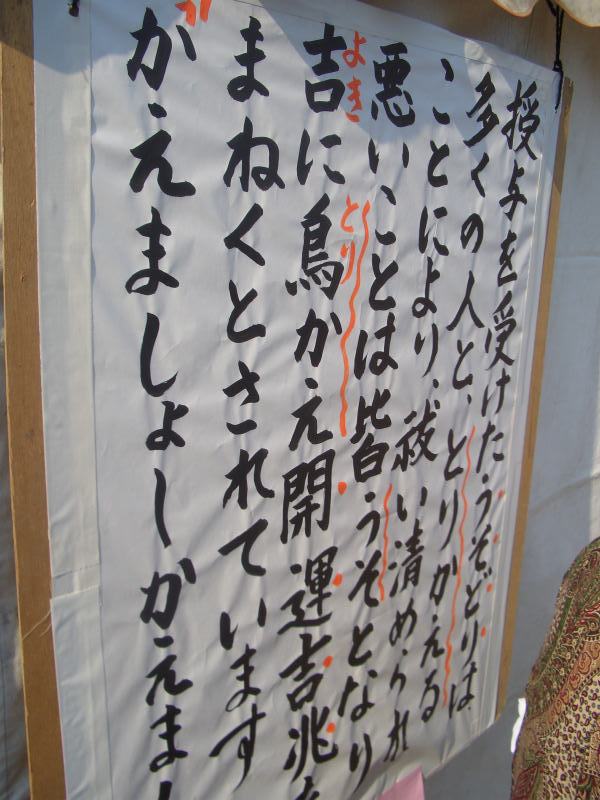 授与を受けたうそどりは
多くの人と、とりかえる
ことにより、祓い清められ
悪いことは皆うそとなり
吉に鳥かえ開運吉兆を
よき
とり
まねくとされています
がえましょしかえまし